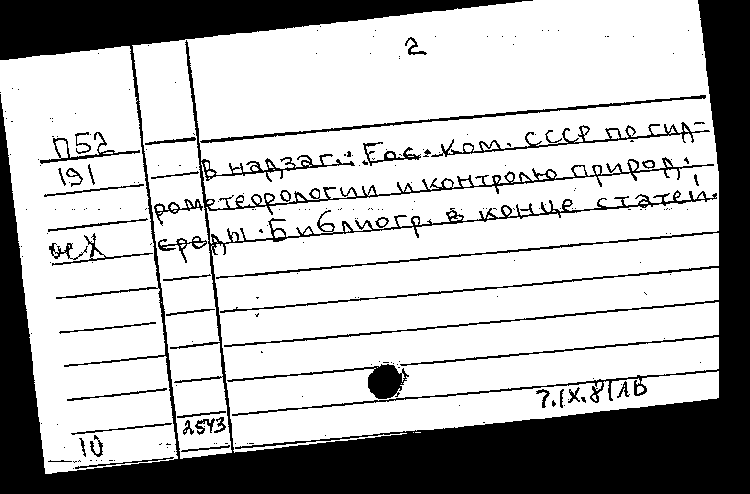 2
П52
191
В надзаг.: Гос. ком. СССР по гид-
рометеорологии и контролю природ.
среды. Библиогр. в конце статей.
10
2543
7.IX.81